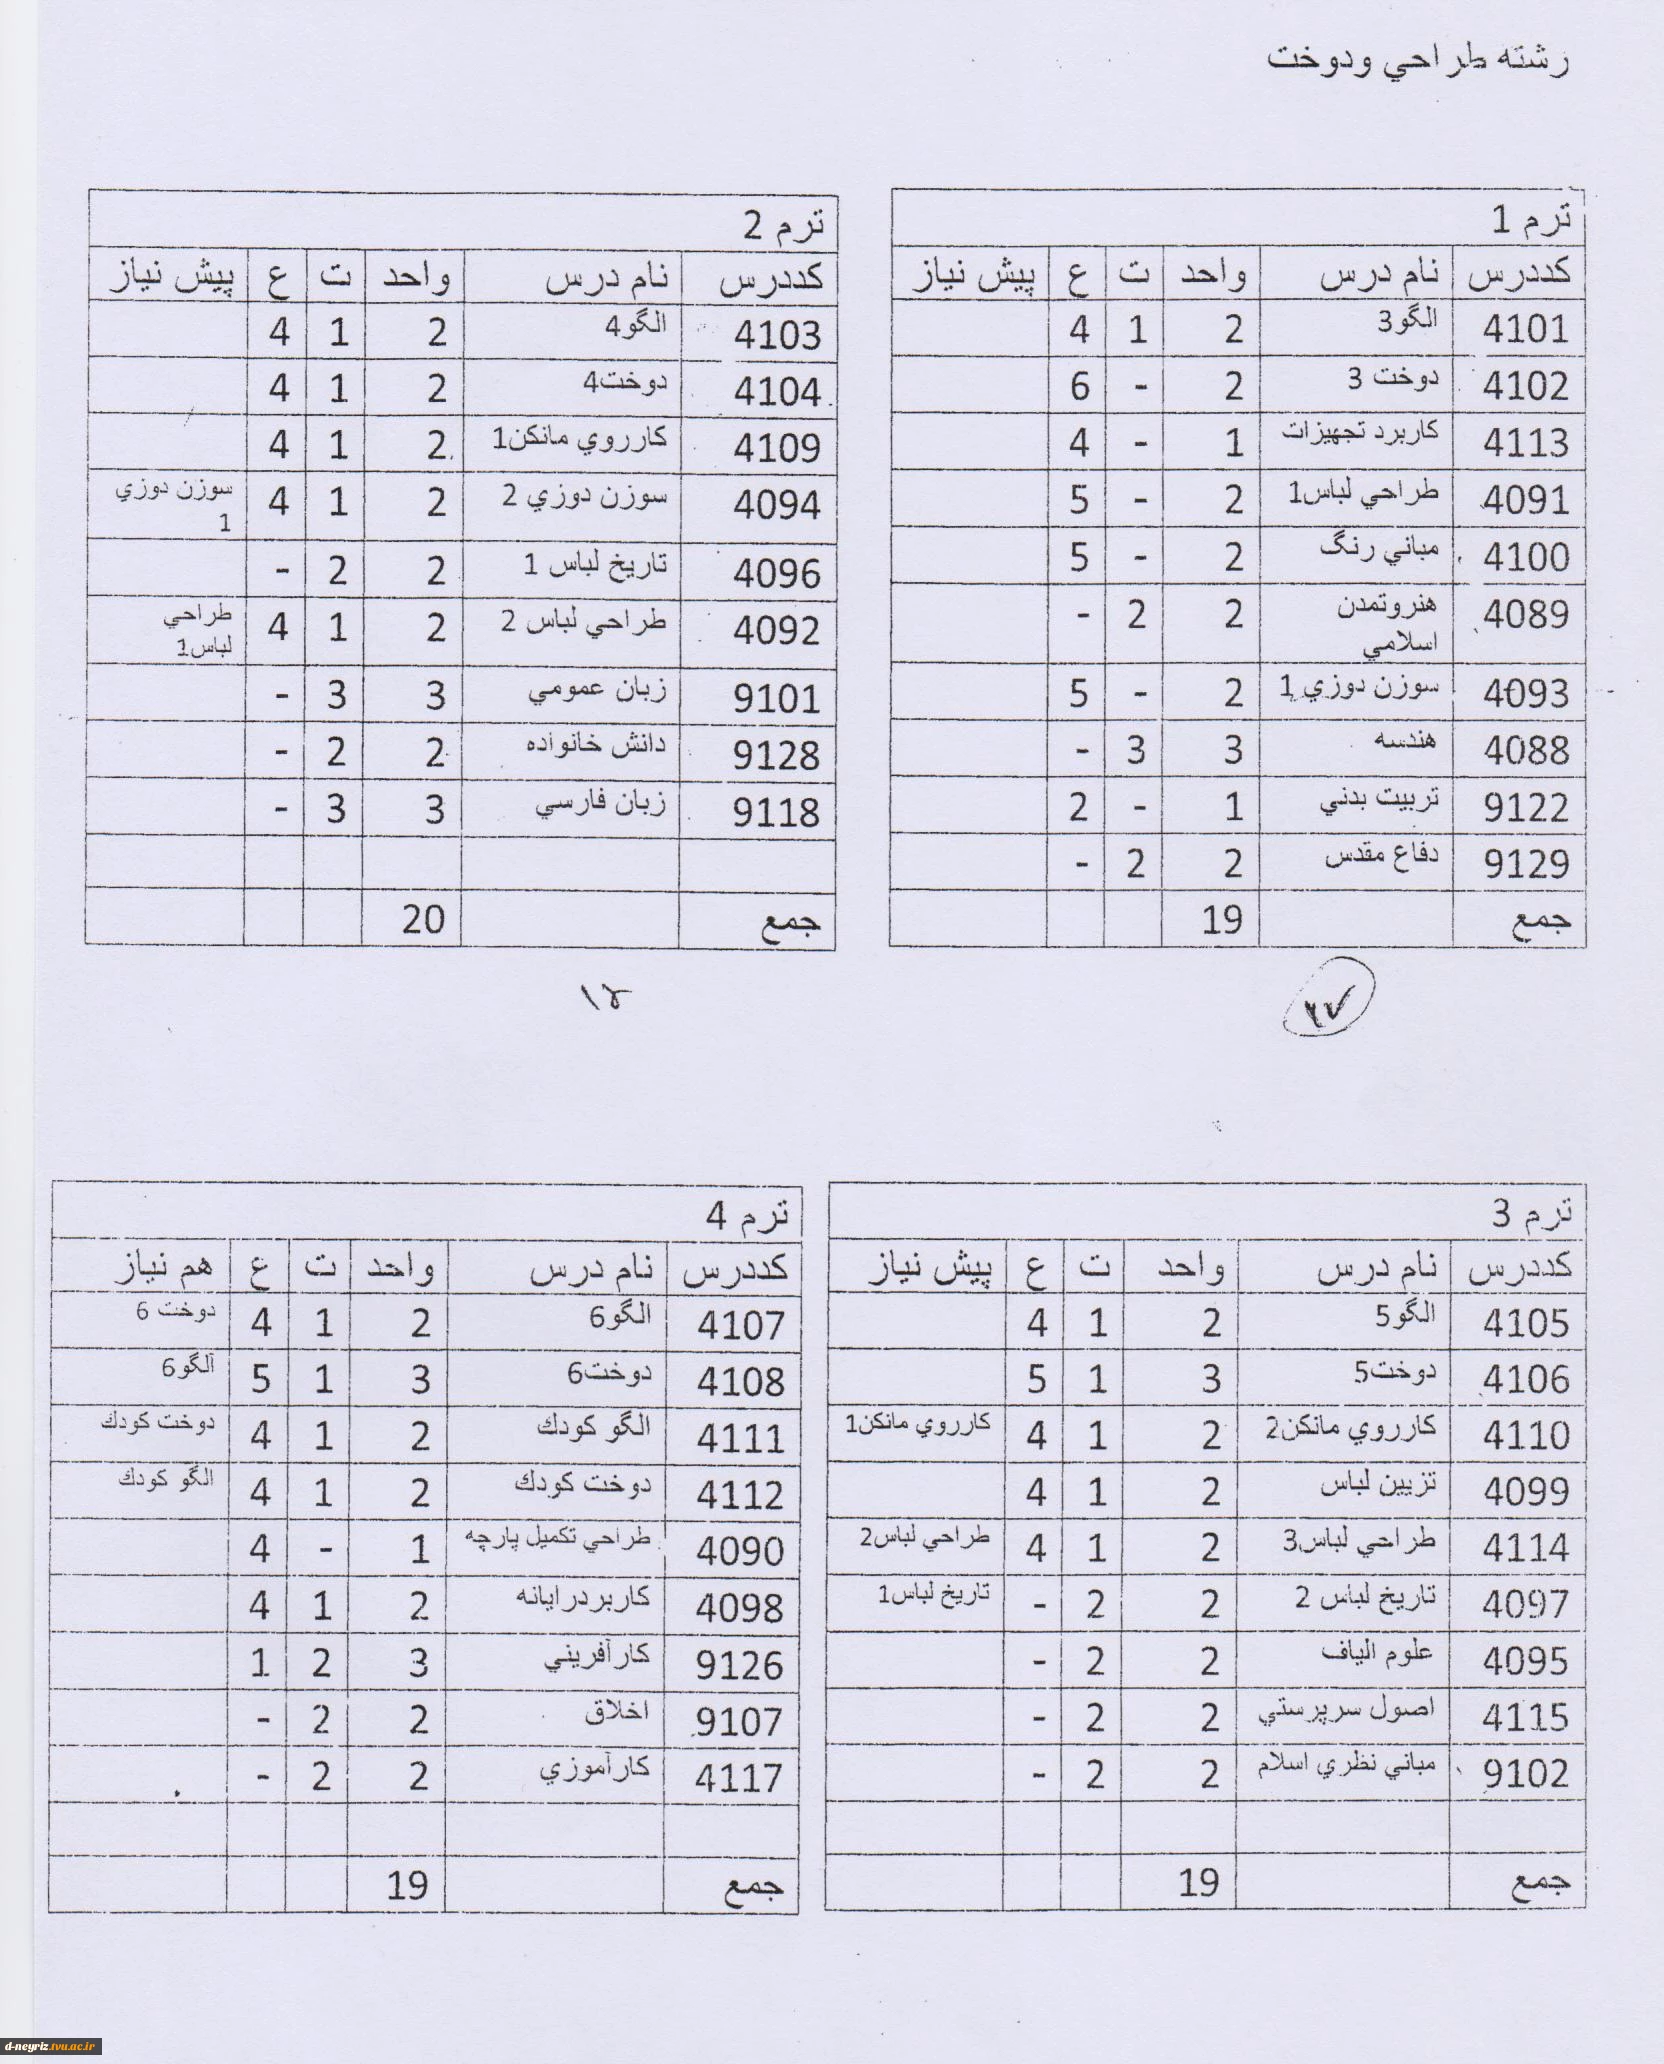 رشته طراحي ودوخت
ترم 1
كددرس نام درس واحد ت ع پيش نياز
4101 الگو3 2 1 4
4102 دوخت 3 2 - 6
4113 كاربرد تجهيزات 1 - 4
4091 طراحي لباس1 2 - 5
4100 مباني رنگ 2 - 5
4089 هنروتمدن اسلامي 2 2 -
4093 سوزن دوزي 1 2 - 5
4088 هندسه 3 3 -
9122 تربيت بدني 1 - 2
9129 دفاع مقدس 2 2 -
جمع 19
ترم 2
كددرس نام درس واحد ت ع پيش نياز
4103 الگو4 2 1 4
4104 دوخت4 2 1 4
4109 كارروي مانكن1 2 1 4
4094 سوزن دوزي 2 2 1 4 سوزن دوزي 1
4096 تاريخ لباس 1 2 2 -
4092 طراحي لباس 2 2 1 4 طراحي لباس1
9101 زبان عمومي 3 3 -
9128 دانش خانواده 2 2 -
9118 زبان فارسي 3 3 -
جمع 20
ترم 3
كددرس نام درس واحد ت ع پيش نياز
4105 الگو5 2 1 4
4106 دوخت5 3 1 5
4110 كارروي مانكن2 2 1 4 كارروي مانكن1
4099 تزيين لباس 2 1 4
4114 طراحي لباس3 2 1 4 طراحي لباس2
4097 تاريخ لباس 2 2 2 - تاريخ لباس1
4095 علوم الياف 2 2 -
4115 اصول سرپرستي 2 2 -
9102 مباني نظري اسلام 2 2 -
جمع 19
ترم 4
كددرس نام درس واحد ت ع هم نياز
4107 الگو6 2 1 4 دوخت 6
4108 دوخت6 3 1 5 الگو6
4111 الگو كودك 2 1 4 دوخت كودك
4112 دوخت كودك 2 1 4 الگو كودك
4090 طراحي تكميل پارچه 1 - 4
4098 كاربردرايانه 2 1 4
9126 كارآفريني 3 2 1
9107 اخلاق 2 2 -
4117 كارآموزي 2 2 -
جمع 19
d-neyriz.tvu.ac.ir